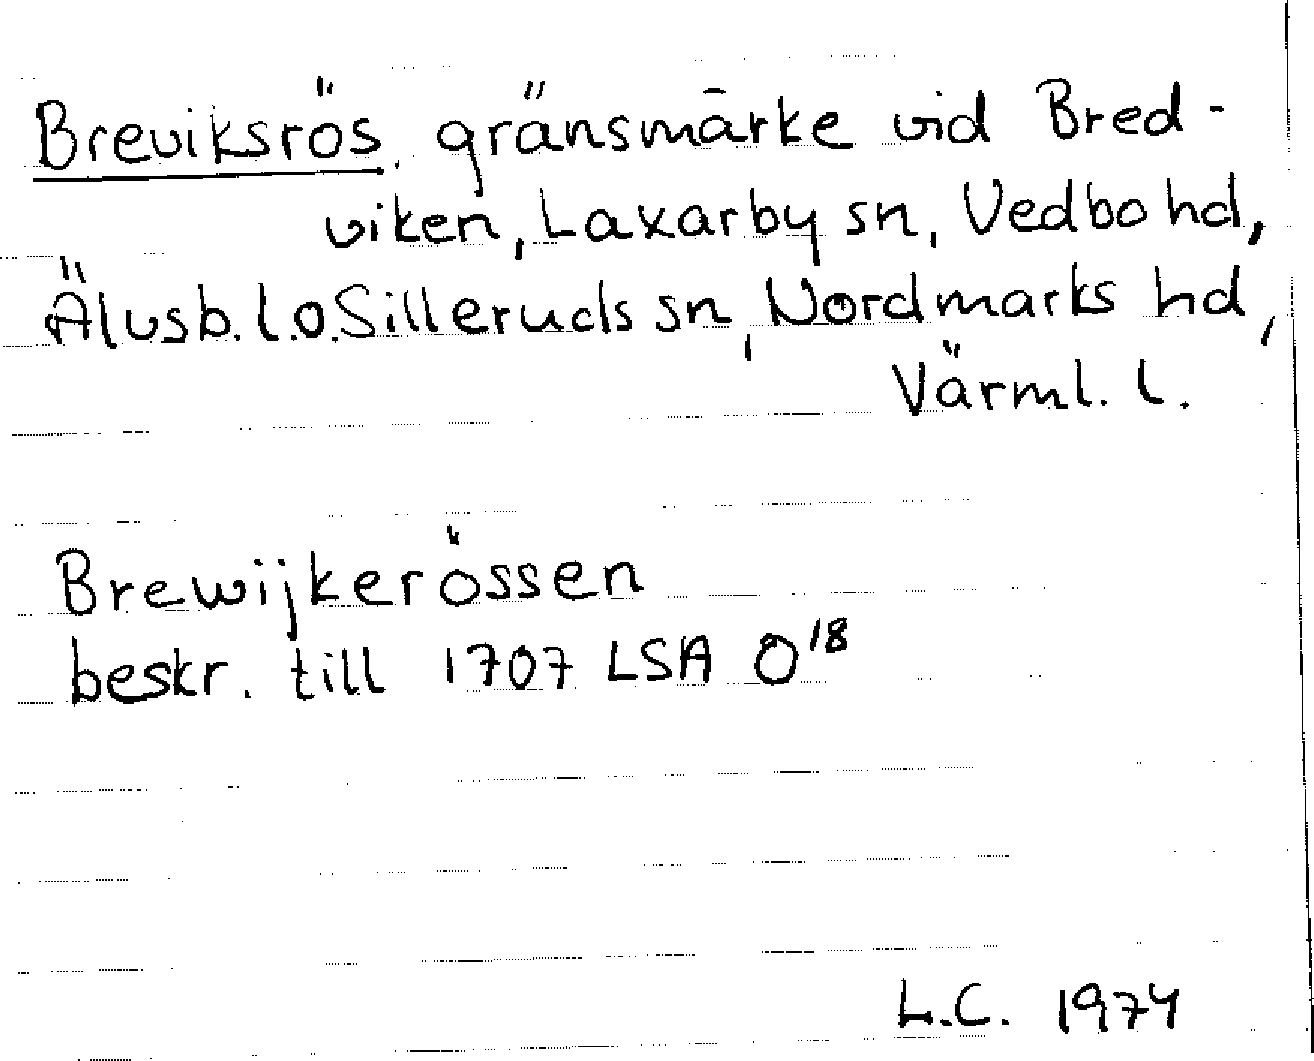 Breviksrös, gränsmärke vid Bred-
viken, Laxarby sn, Vedbo hd,
Älvsb. l. o. Silleruds sn, Nordmarks hd,
Värml. l.
Brewijkerössen
beskr. till 1707 LSA O 18
L.C. 1974